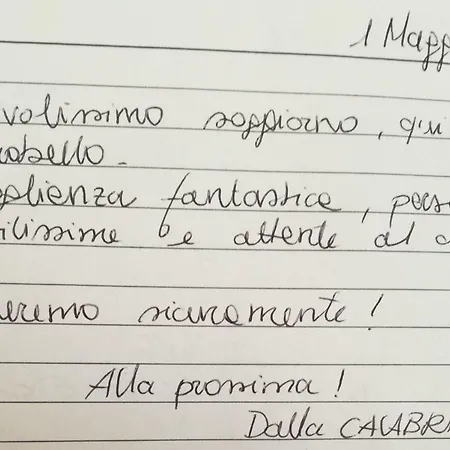 1 Magg
volissimo soggiorno, qui
abello.
glienza fantastica, pers
ilissime e attente al c
eremo sicuramente!
Alla prossima!
Dalla CALABR